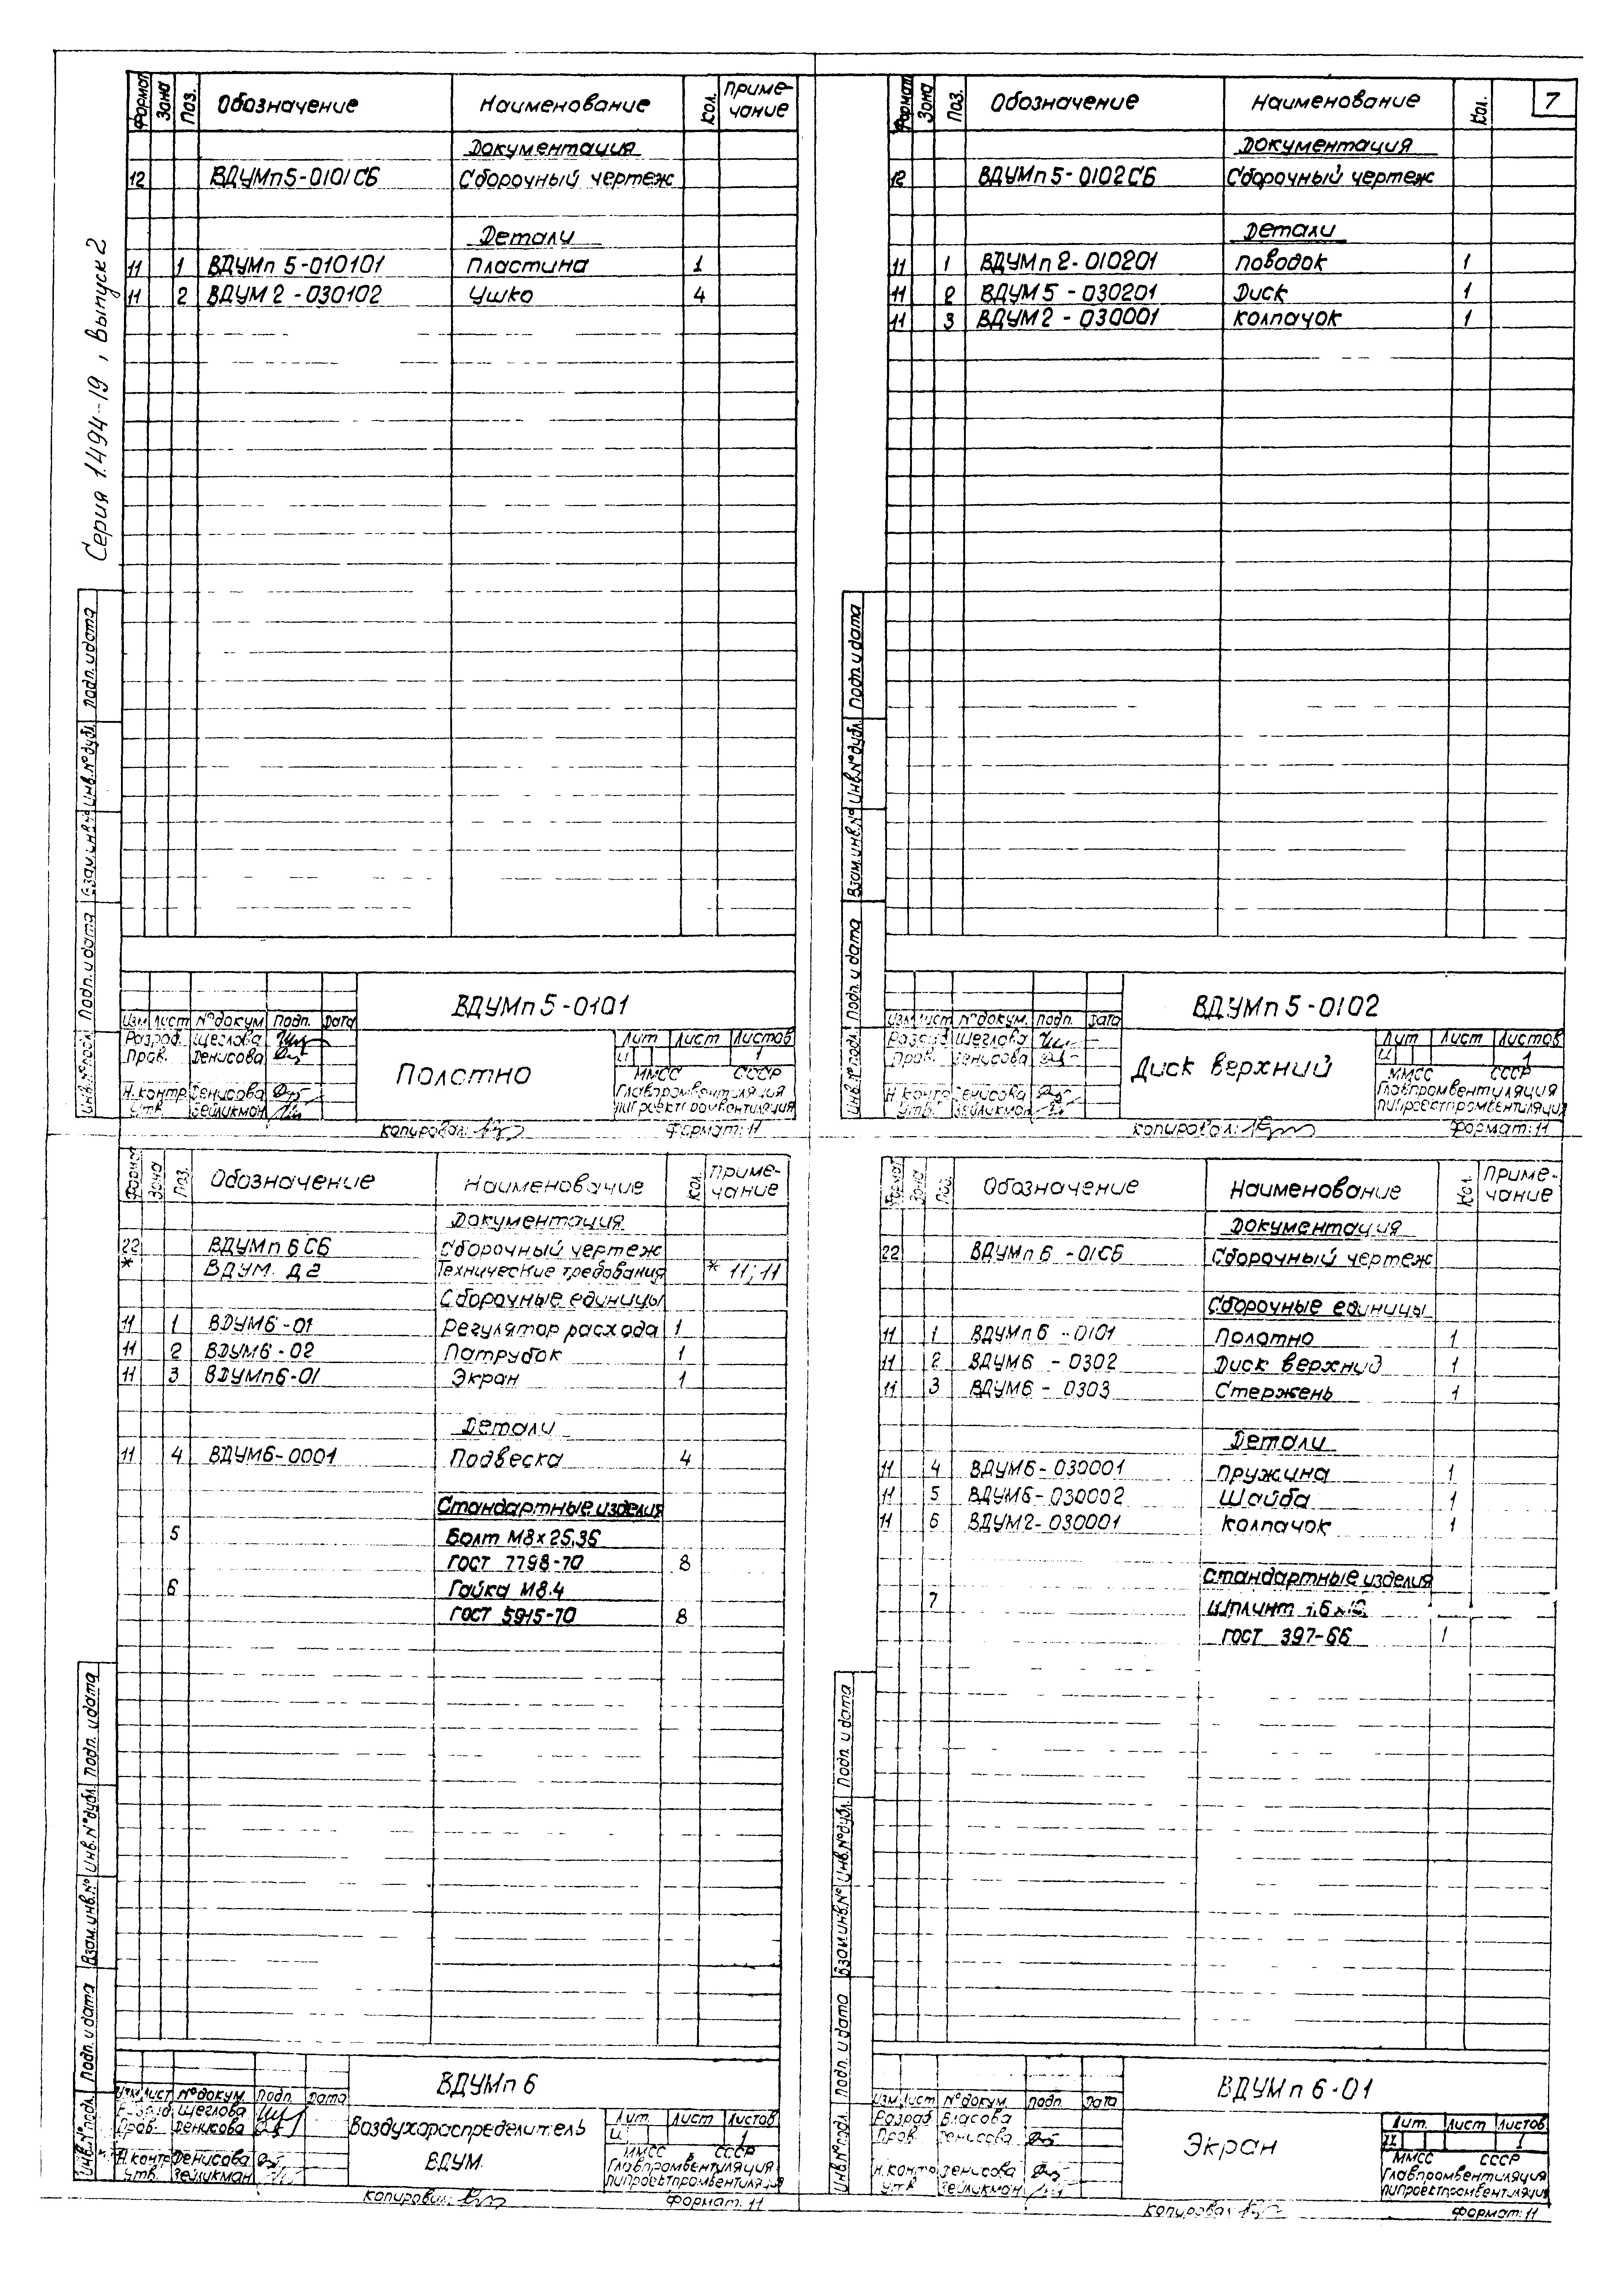 Серия 1.494-19, выпуск 2
7
Формат Зона Поз. Обозначение Наименование Кол. Приме-
чание
Документация
12 ВДУМп5-0101СБ Сборочный чертеж
Детали
11 1 ВДУМп 5-010101 Пластина 1
11 2 ВДУМ 2-030102 Ушко 4
Изм Лист №докум Подп. Дата
Разраб. Щеглова
Пров. Денисова
Н.контр Денисова
Утв. Зейликман
ВДУМп 5-0101
Полотно
Лит Лист Листов
И 1
ММСС СССР
Главпромвентиляция
Копировал: Формат: 11
Инв.№подл. Подп. и дата Взам.инв.№ Инв.№дубл. Подп. и дата
Формат Зона Поз. Обозначение Наименование Кол.
Документация
12 ВДУМп 5-0102СБ Сборочный чертеж
Детали
11 1 ВДУМп 2-010201 Поводок 1
11 2 ВДУМ 5-030201 Диск 1
11 3 ВДУМ 2-030001 Колпачок 1
Изм Лист №докум. Подп. Дата
Разраб Щеглова
Пров. Денисова
Н контр Денисова
Утв. Зейликман
ВДУМп 5-0102
Диск верхний
Лит Лист Листов
И 1
ММСС СССР
Главпромвентиляция
Копировал: Формат: 11
Инв.№подл. Подп. и дата Взам.инв.№ Инв.№дубл. Подп. и дата
Формат Зона Поз. Обозначение Наименование Кол. Приме-
чание
Документация
22 ВДУМп 6 СБ Сборочный чертеж
* ВДУМ. Д2 Технические требования * 11; 11
Сборочные единицы
11 1 ВДУМ6-01 Регулятор расхода 1
11 2 ВДУМ6-02 Патрубок 1
11 3 ВДУМп6-01 Экран 1
Детали
11 4 ВДУМ6-0001 Подвеска 4
Стандартные изделия
5 Болт М8×25.36
ГОСТ 7798-70 8
6 Гайка М8.4
ГОСТ 5915-70 8
Изм Лист №докум. Подп. Дата
Разраб Щеглова
Пров. Денисова
Н.контр Денисова
Утв. Зейликман
ВДУМп 6
Воздухораспределитель
ВДУМ
Лит. Лист Листов
И 1
ММСС СССР
Главпромвентиляция
Копировал: Формат: 11
Инв.№подл. Подп. и дата Взам.инв.№ Инв.№дубл. Подп. и дата
Формат Зона Поз. Обозначение Наименование Кол. Приме-
чание
Документация
22 ВДУМп 6-01СБ Сборочный чертеж
Сборочные единицы
11 1 ВДУМп 6-0101 Полотно 1
11 2 ВДУМ6-0302 Диск верхний 1
11 3 ВДУМ6-0303 Стержень 1
Детали
11 4 ВДУМ6-030001 Пружина 1
11 5 ВДУМ6-030002 Шайба 1
11 6 ВДУМ2-030001 Колпачок 1
Стандартные изделия
7 Шплинт
ГОСТ 397-66 1
Изм Лист №докум. Подп. Дата
Разраб Власова
Пров Денисова
Н.контр Денисова
Утв Зейликман
ВДУМп 6-01
Экран
Лит. Лист Листов
И 1
ММСС СССР
Главпромвентиляция
Копировал Формат: 11
Инв.№подл. Подп. и дата Взам.инв.№ Инв.№дубл. Подп. и дата